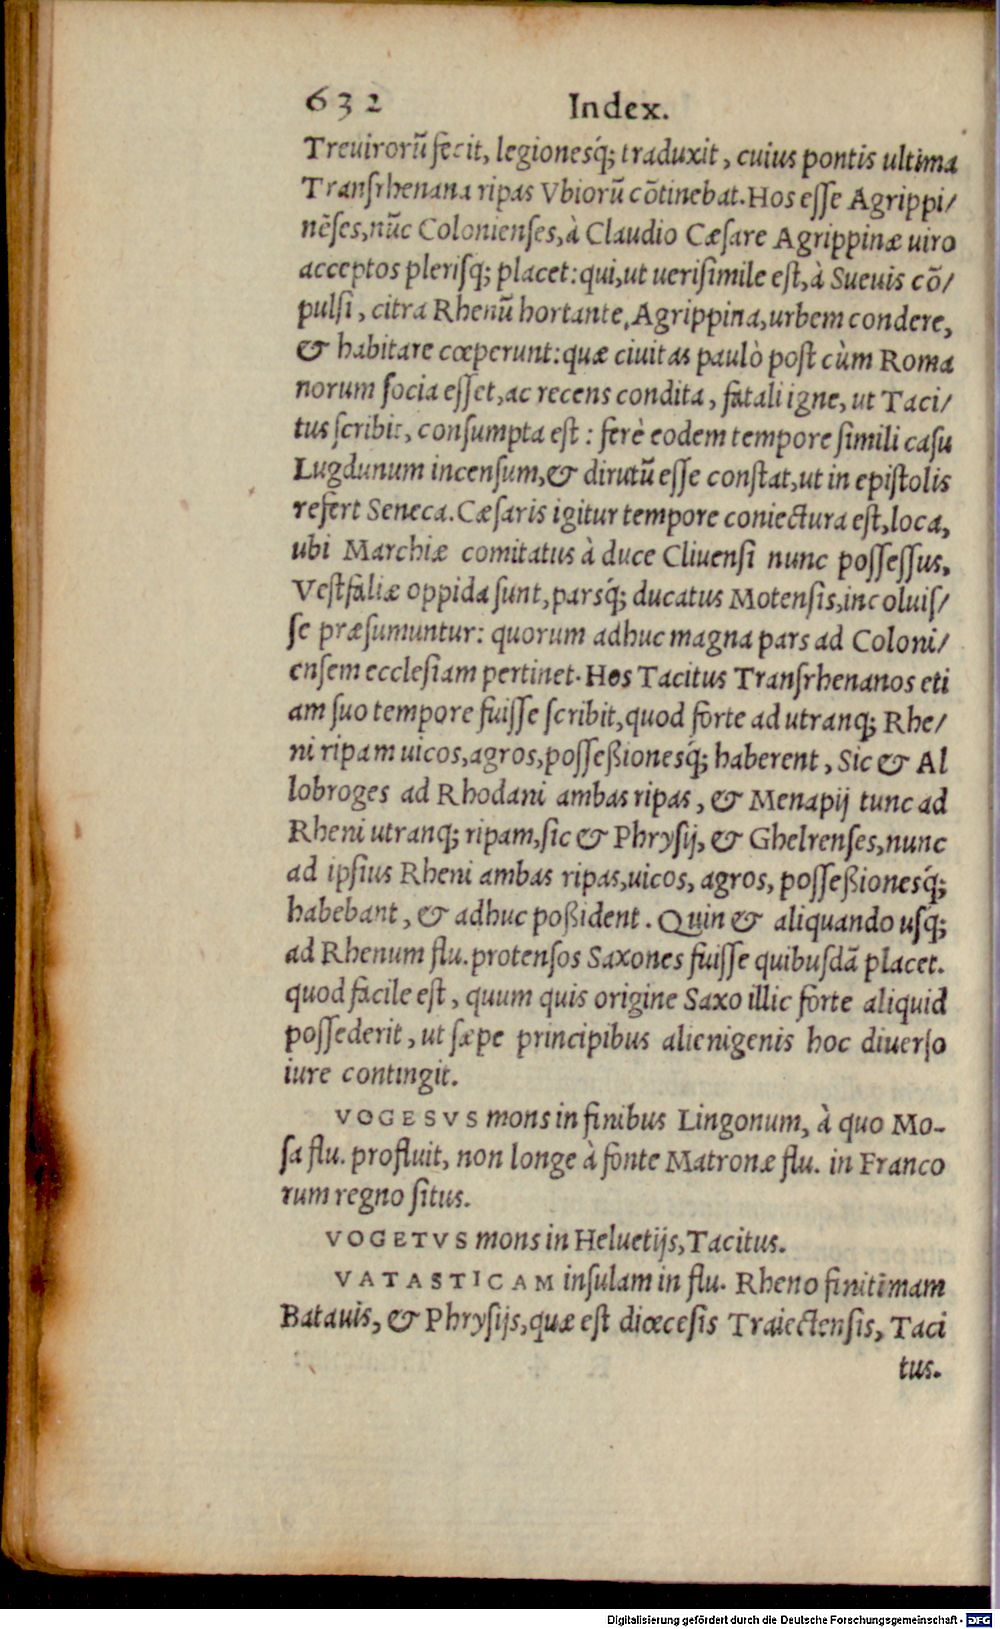 632 Index.
Treuirorū fecit, legionesq́; traduxit, cuius pontis ultima
Tranſrhenana ripas Vbiorū cōtinebat. Hos eſſe Agrippi/
nēſes, nūc Colonienſes, à Claudio Cæſare Agrippinæ uiro
acceptos pleriſq; placet: qui, ut ueriſimile eſt, à Sueuis cō/
pulſi, citra Rhenū hortante, Agrippina, urbem condere,
& habitare cœperunt: quæ ciuitas paulò poſt cùm Roma
norum ſocia eſſet, ac recens condita, fatali igne, ut Taci/
tus ſcribit, conſumpta eſt: ferè eodem tempore ſimili caſu
Lugdunum incenſum, & dirutū eſſe conſtat, ut in epiſtolis
refert Seneca. Cæſaris igitur tempore coniectura eſt, loca,
ubi Marchiæ comitatus à duce Cliuenſi nunc poſſeſſus,
Veſtfaliæ oppida ſunt, parsq́; ducatus Motenſis, incoluiſ/
ſe præſumuntur: quorum adhuc magna pars ad Coloni/
enſem eccleſiam pertinet. Hos Tacitus Tranſrhenanos eti
am ſuo tempore fuiſſe ſcribit, quod forte ad utranq; Rhe/
ni ripam uicos, agros, poſſeßionesq́; haberent, Sic & Al
lobroges ad Rhodani ambas ripas, & Menapij tunc ad
Rheni utranq; ripam, ſic & Phryſij, & Ghelrenſes, nunc
ad ipſius Rheni ambas ripas, uicos, agros, poſſeßionesq́;
habebant, & adhuc poßident. Quin & aliquando uſq́;
ad Rhenum flu. protenſos Saxones fuiſſe quibuſdā placet.
quod facile eſt, quum quis origine Saxo illic forte aliquid
poſſederit, ut ſæpe principibus alienigenis hoc diuerſo
iure contingit.
VOGESVS mons in finibus Lingonum, à quo Mo-
ſa flu. profluit, non longe à fonte Matronæ flu. in Franco
rum regno ſitus.
VOGETVS mons in Heluetijs, Tacitus.
VATASTICAM inſulam in flu. Rheno finitimam
Batauis, & Phryſijs, quæ eſt diœceſis Traiectenſis, Taci
tus.
Digitalisierung gefördert durch die Deutsche Forschungsgemeinschaft - DFG